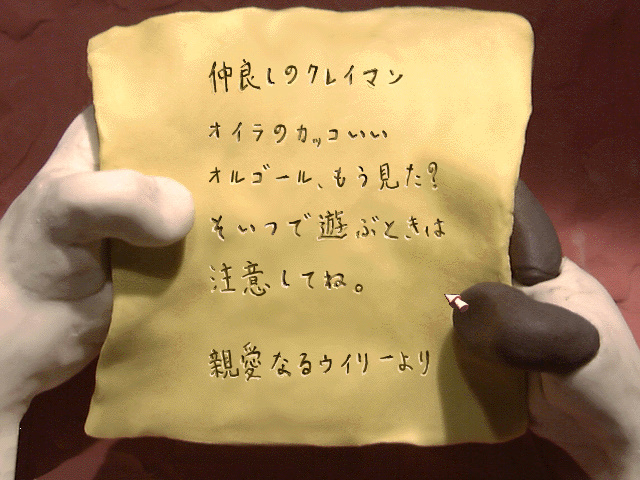 仲良しのクレイマン
オイラのカッコいい
オルゴール、もう見た?
そいつで遊ぶときは
注意してね。
親愛なるウイリーより